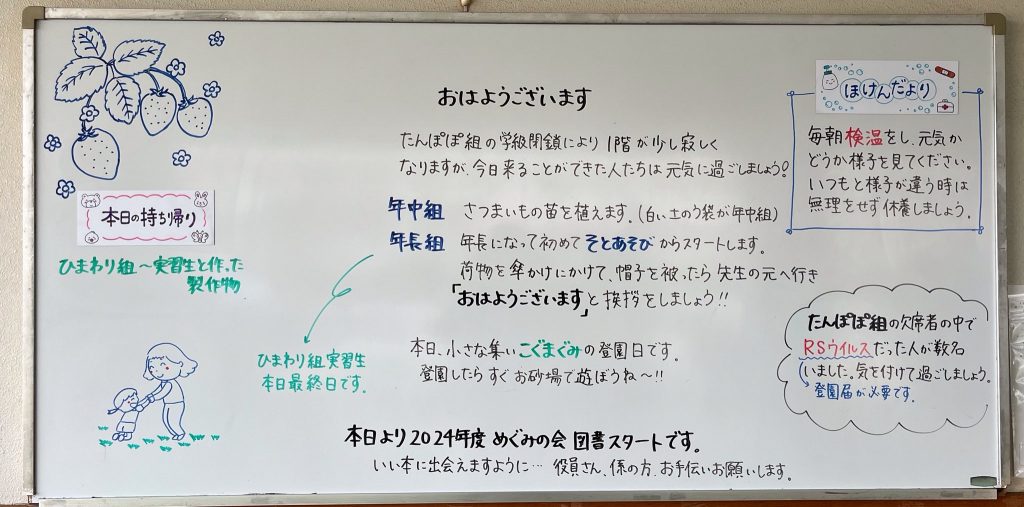 おはようございます
たんぽぽ組の学級閉鎖により 1階が少し寂しく
なりますが、今日来ることができた人たちは元気に過ごしましょう!
年中組 さつまいもの苗を植えます。(白い土のう袋が年中組)
年長組 年長になって初めて そとあそび からスタートします。
荷物を傘かけにかけて、帽子を被ったら 先生の元へ行き
「おはようございます」と挨拶をしましょう!!
本日、小さな集い こぐまぐみの登園日です。
登園したら すぐ お砂場で遊ぼうね〜!!
本日より2024年度 めぐみの会 図書スタートです。
いい本に出会えますように… 役員さん、係の方、お手伝いお願いします。
本日の持ち帰り
ひまわり組〜実習生と作った
製作物
ひまわり組実習生
本日最終日です。
ほけんだより
毎朝検温をし、元気か
どうか様子を見てください。
いつもと様子が違う時は
無理をせず休養しましょう。
たんぽぽ組の欠席者の中で
RSウイルスだった人が数名
いました。気を付けて過ごしましょう。
登園届が必要です。